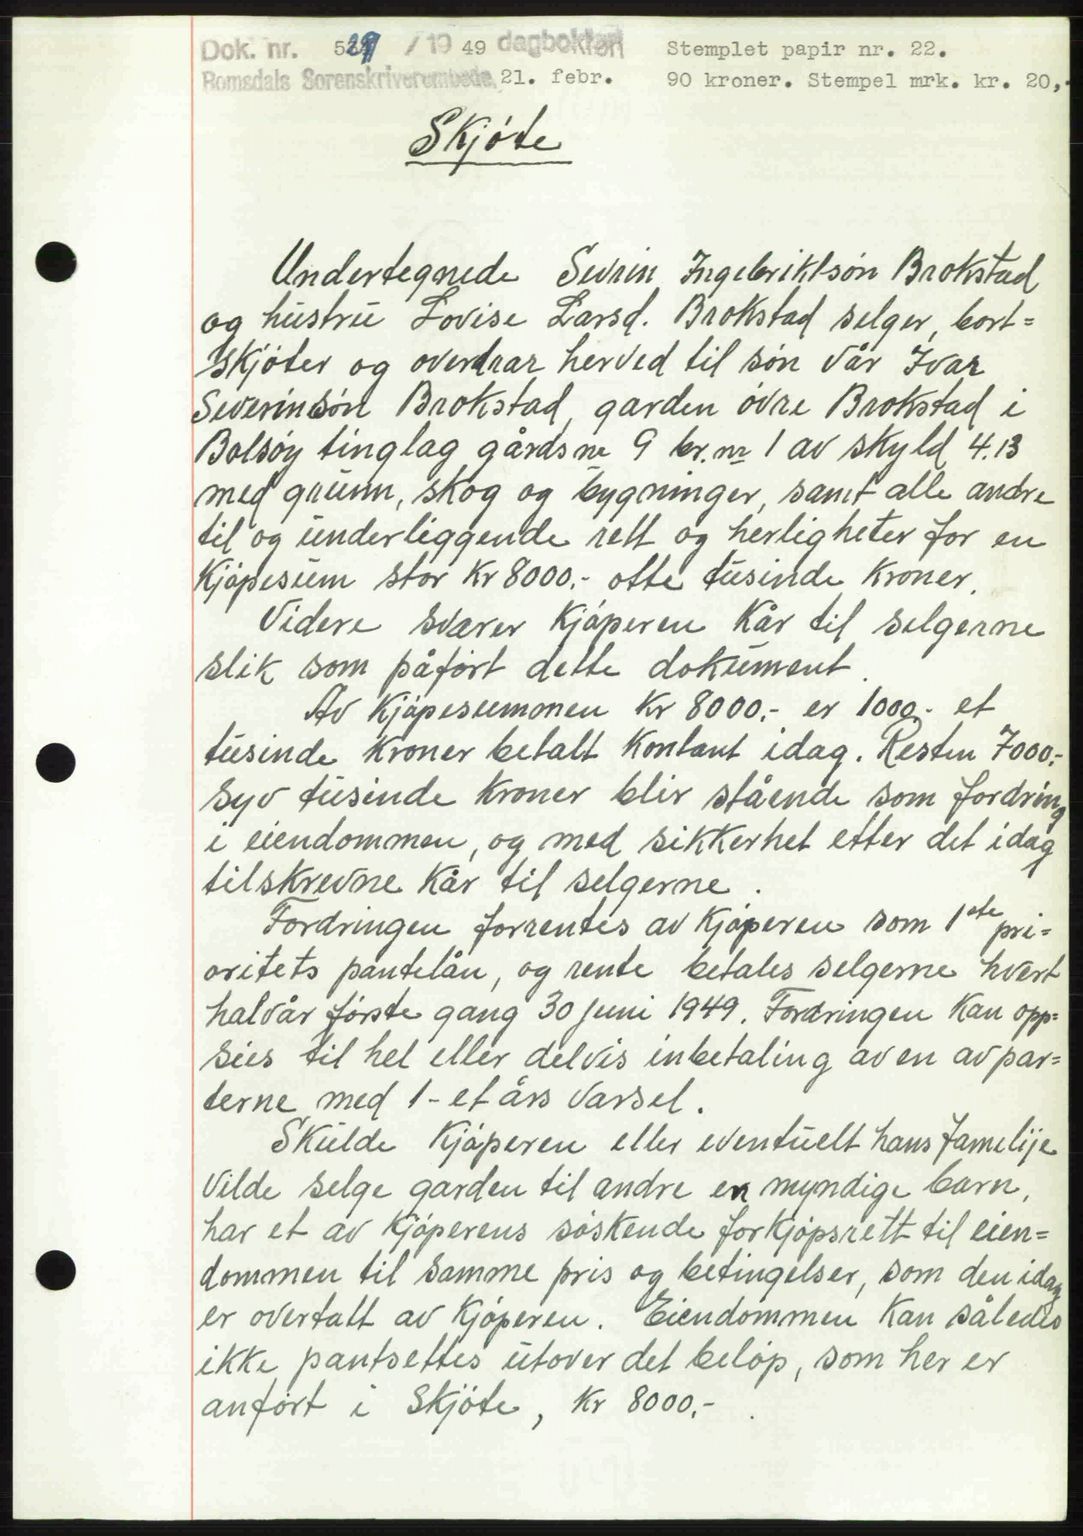 Dok. nr. 529 / 19 49 dagbokført Stemplet papir nr. 22.
Romsdals Sorenskriverembede, 21. febr. 90 kroner. Stempel mrk. kr. 20,-
Skjøte
Undertegnede Sevrin Ingebriktsøn Brokstad
og hustru Lovise Larsd. Brokstad selger, bort=
skjøter og overdrar herved til søn vår Ivar
Severinsøn Brokstad, garden øvre Brokstad i
Bolsøy tinglag gårdsnr 9 br.nr 1 av skyld 4.13
med grunn, skog og bygninger, samt alle andre
til og underliggende rett og herligheter for en
Kjøpesum stor Kr 8000.- otte tusinde kroner.
Videre svarer Kjøperen Kår til selgerne
slik som påført dette dokument.
Av Kjøpesummen Kr 8000.- er 1000.- et
tusinde kroner betalt kontant idag. Resten 7000.-
syv tusinde kroner blir stående som fordring
i eiendommen, og med sikkerhet etter det idag
tilskrevne Kår til selgerne.
Fordringen forrentes av Kjøperen som 1ste pri=
oritets pantelån, og rente betales selgerne hvert
halvår første gang 30 juni 1949. Fordringen kan opp=
sies til hel eller delvis inbetaling av en av par=
terne med 1- et års varsel.
Skulde Kjøperen eller eventuelt hans famelije
vilde selge garden til andre en myndige barn,
har et av Kjøperens søskende forkjøpsrett til eien=
dommen til samme pris og betingelser, som den idag
er overtatt av Kjøperen. Eiendommen kan således
ikke pantsettes utover det beløp, som her er
anført i Skjøte, Kr 8000.-